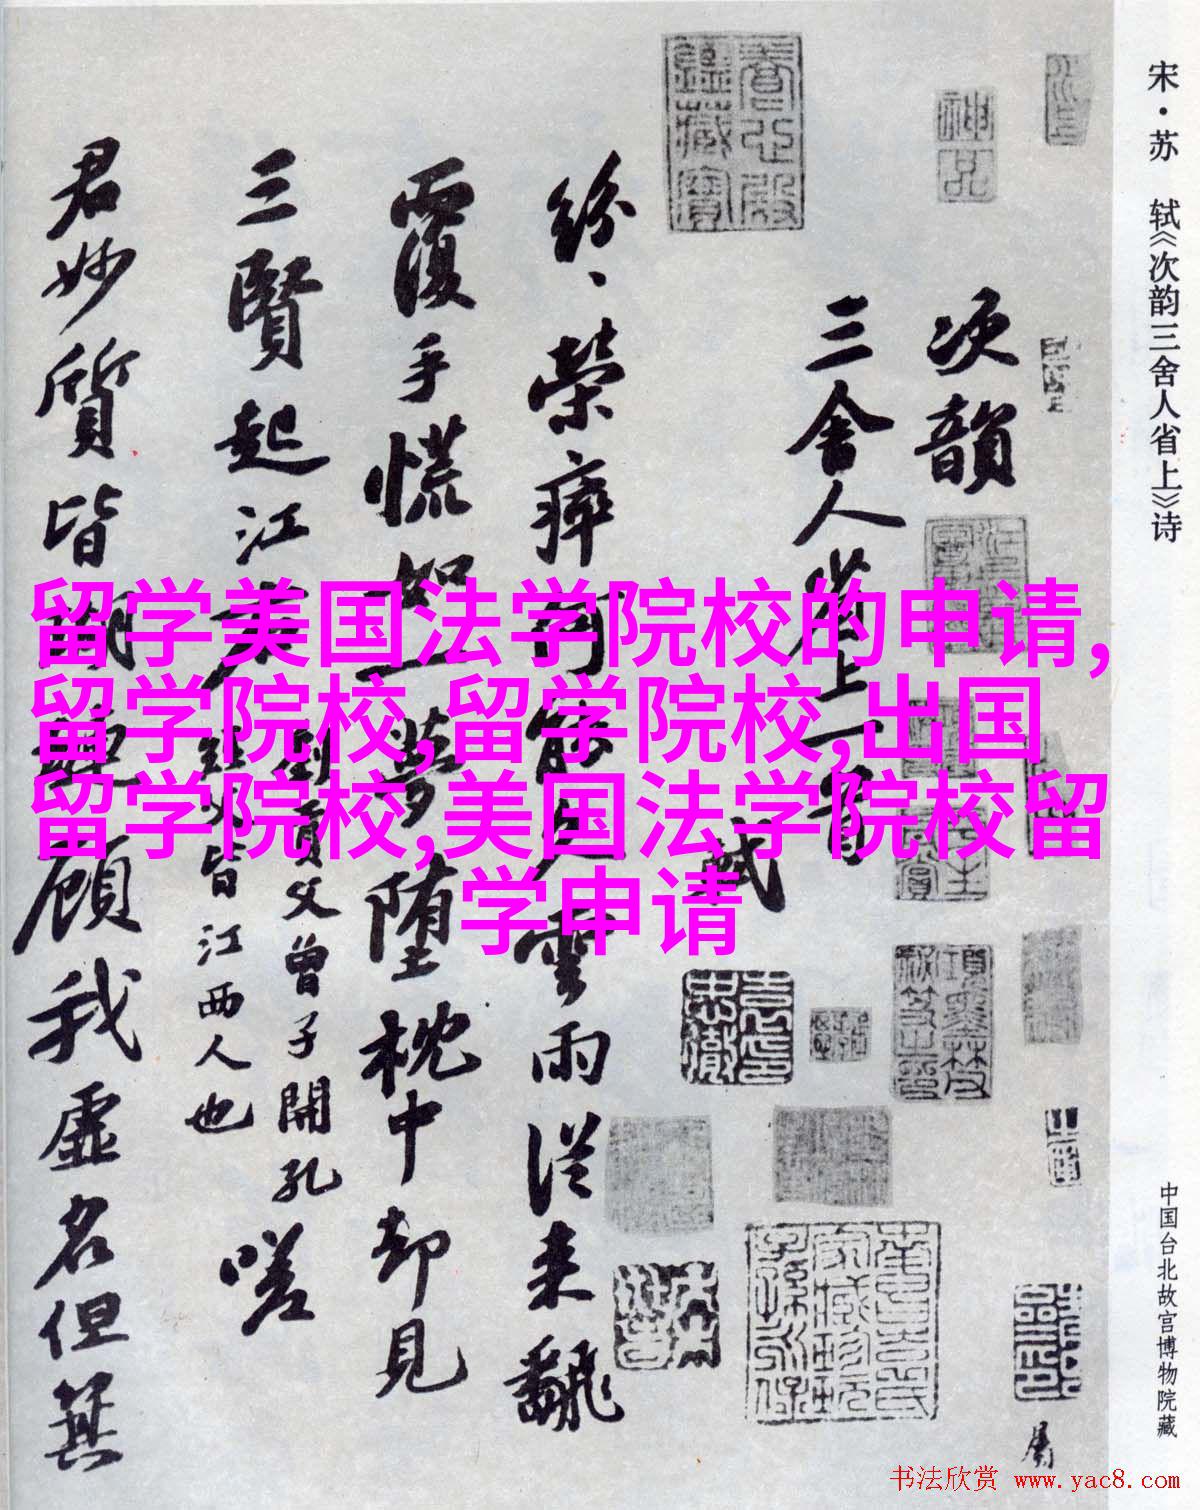 宋·苏 轼《次韵三舍人省上》诗
中国台北故宫博物院藏
次韻
三舍人省上一首
軾
紛〻榮瘁何能久雲雨從来翻
覆手慌如一夢墮枕中却見
三賢起江右
劉貢父曾子開孔
經父皆江西人也
嗟
君妙質皆瑚璉顧我虛名但箕
留学美国法学院校的申请,
留学院校,留学院校,出国
留学院校,美国法学院校留
学申请
神品
书法欣赏 www.yac8.com